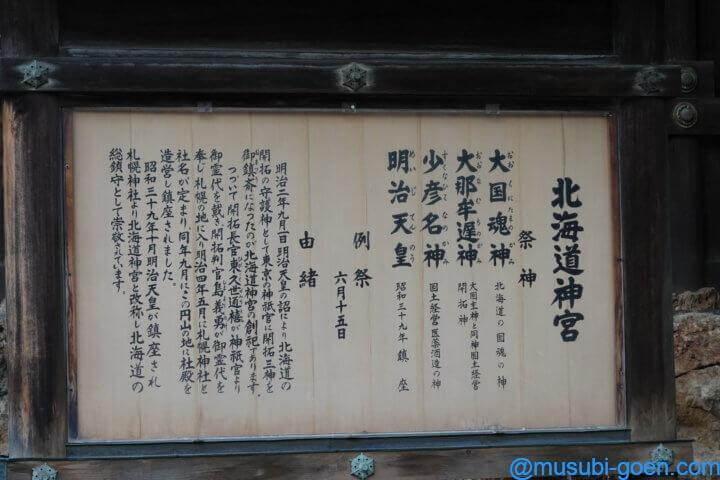 北海道神宮
祭神
大国魂神 北海道の国魂の神
おおくにたまのかみ
大那牟遅神 大国主神と同神国土経営
開拓神
おおなむちのかみ
少彦名神 国土経営医薬酒造の神
すくなひこなのかみ
明治天皇 昭和三十九年鎮座
めいじてんのう
例祭 六月十五日
由緒
明治二年九月一日明治天皇の詔により北海道の
開拓の守護神として東京の神祇官に開拓三神を
御鎮斎になったのが北海道神宮の創祀であります。
つづいて開拓長官東久世通禧が神祇官より
御霊代を戴き開拓判官島義勇が御霊代を
奉じ札幌の地に入り明治四年五月に札幌神社と
社名が定より、同年九月にこの円山の地に社殿を
造営し鎮座されました。
昭和三十九年十月明治天皇が鎮座され
札幌神社より北海道神宮と改称し北海道の
総鎮守として崇敬されています。
@musubi-goen.com